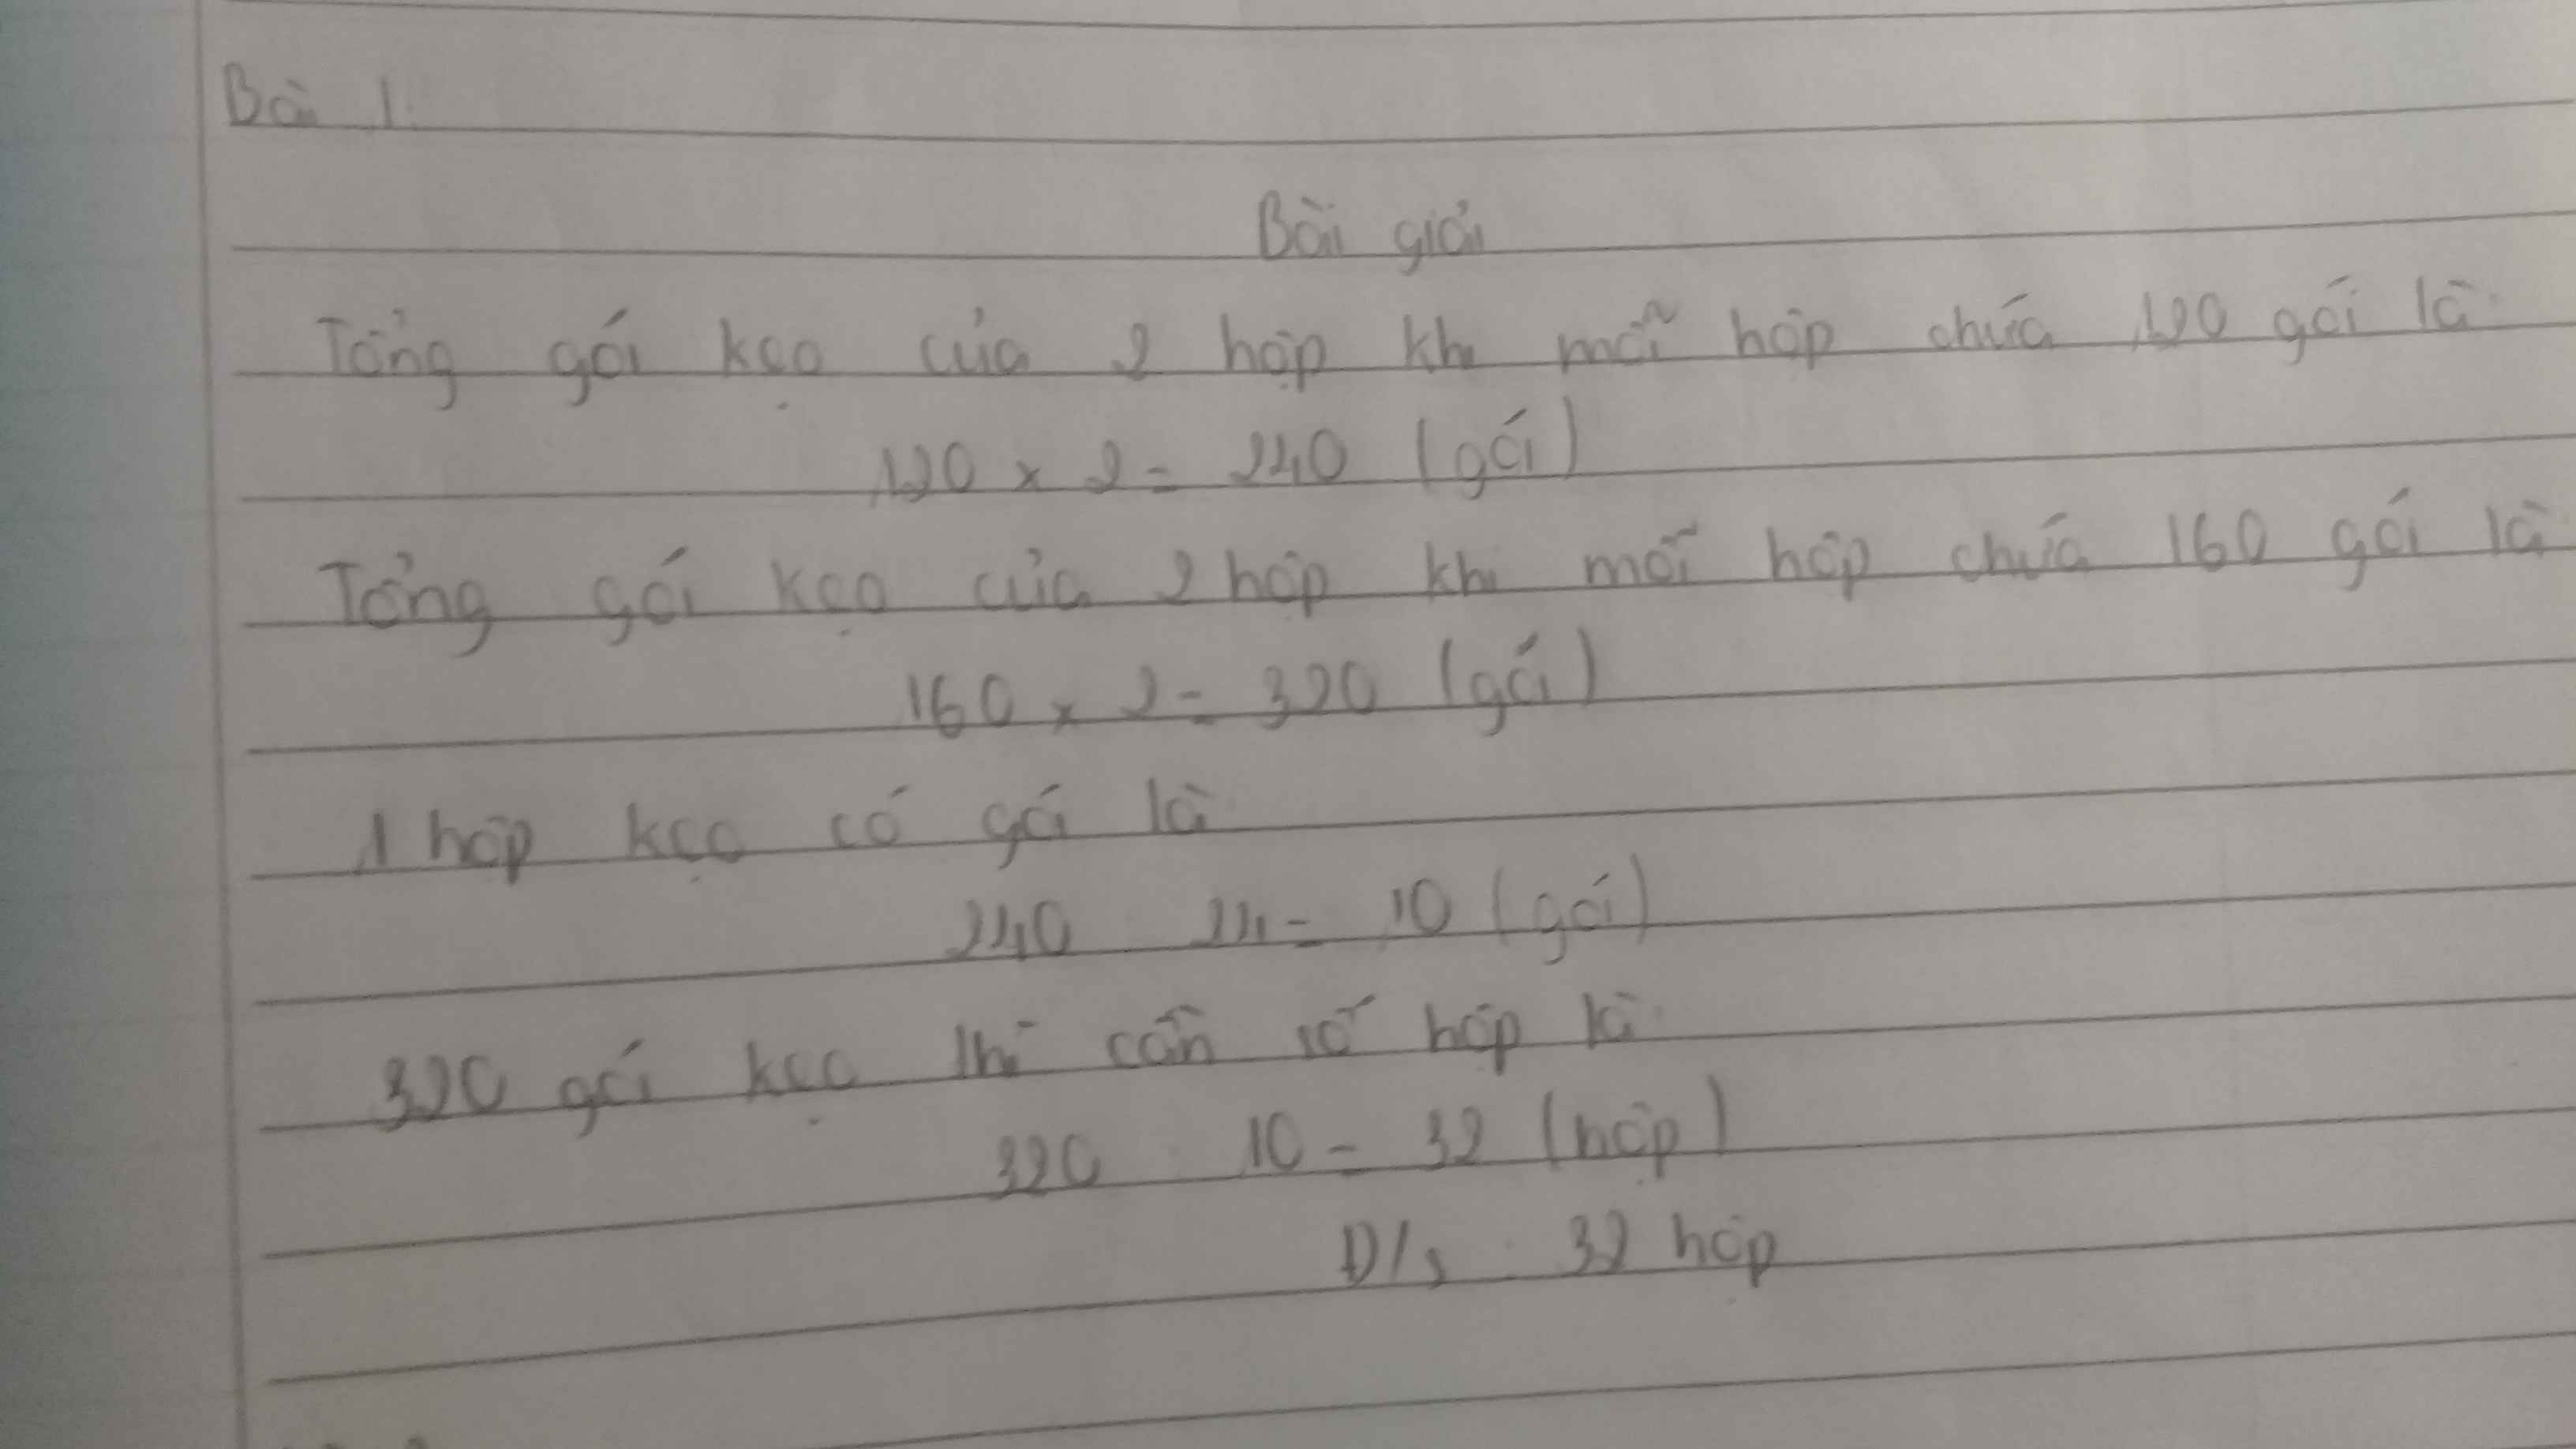 Bài 1:
Bài giải
Tổng gói kẹo của 2 hộp khi mỗi hộp chứa 120 gói là:
120 x 2 = 240 (gói)
Tổng gói kẹo của 2 hộp khi mỗi hộp chứa 160 gói là
160 x 2 = 320 (gói)
1 hộp kẹo có gói là:
240 : 24 = 10 (gói)
320 gói kẹo thì cần số hộp là:
320 : 10 = 32 (hộp)
Đ/s : 32 hộp